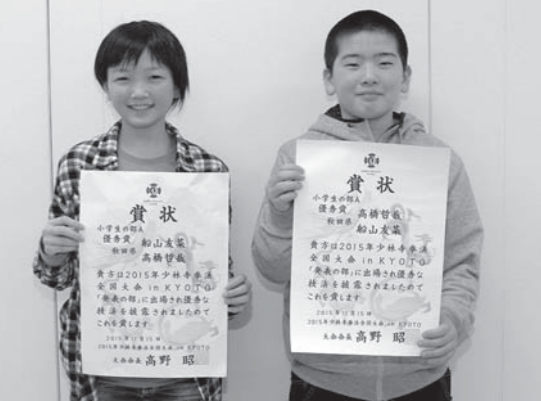 賞状
小学生の部A
優秀賞
秋田県
船山友菜
高橋哲哉
貴方は2015年少林寺拳法
全国大会 in KYOTO
「発表の部」に出場され優秀な
技法を披露されましたので
これを賞します
2015年11月15日
2015年少林寺拳法全国大会 in KYOTO
大会会長 高野 昭
賞状
小学生の部A
優秀賞
秋田県
高橋哲哉
船山友菜
貴方は2015年少林寺拳法
全国大会 in KYOTO
「発表の部」に出場され優秀な
技法を披露されましたので
これを賞します
2015年11月15日
2015年少林寺拳法全国大会 in KYOTO
大会会長 高野 昭